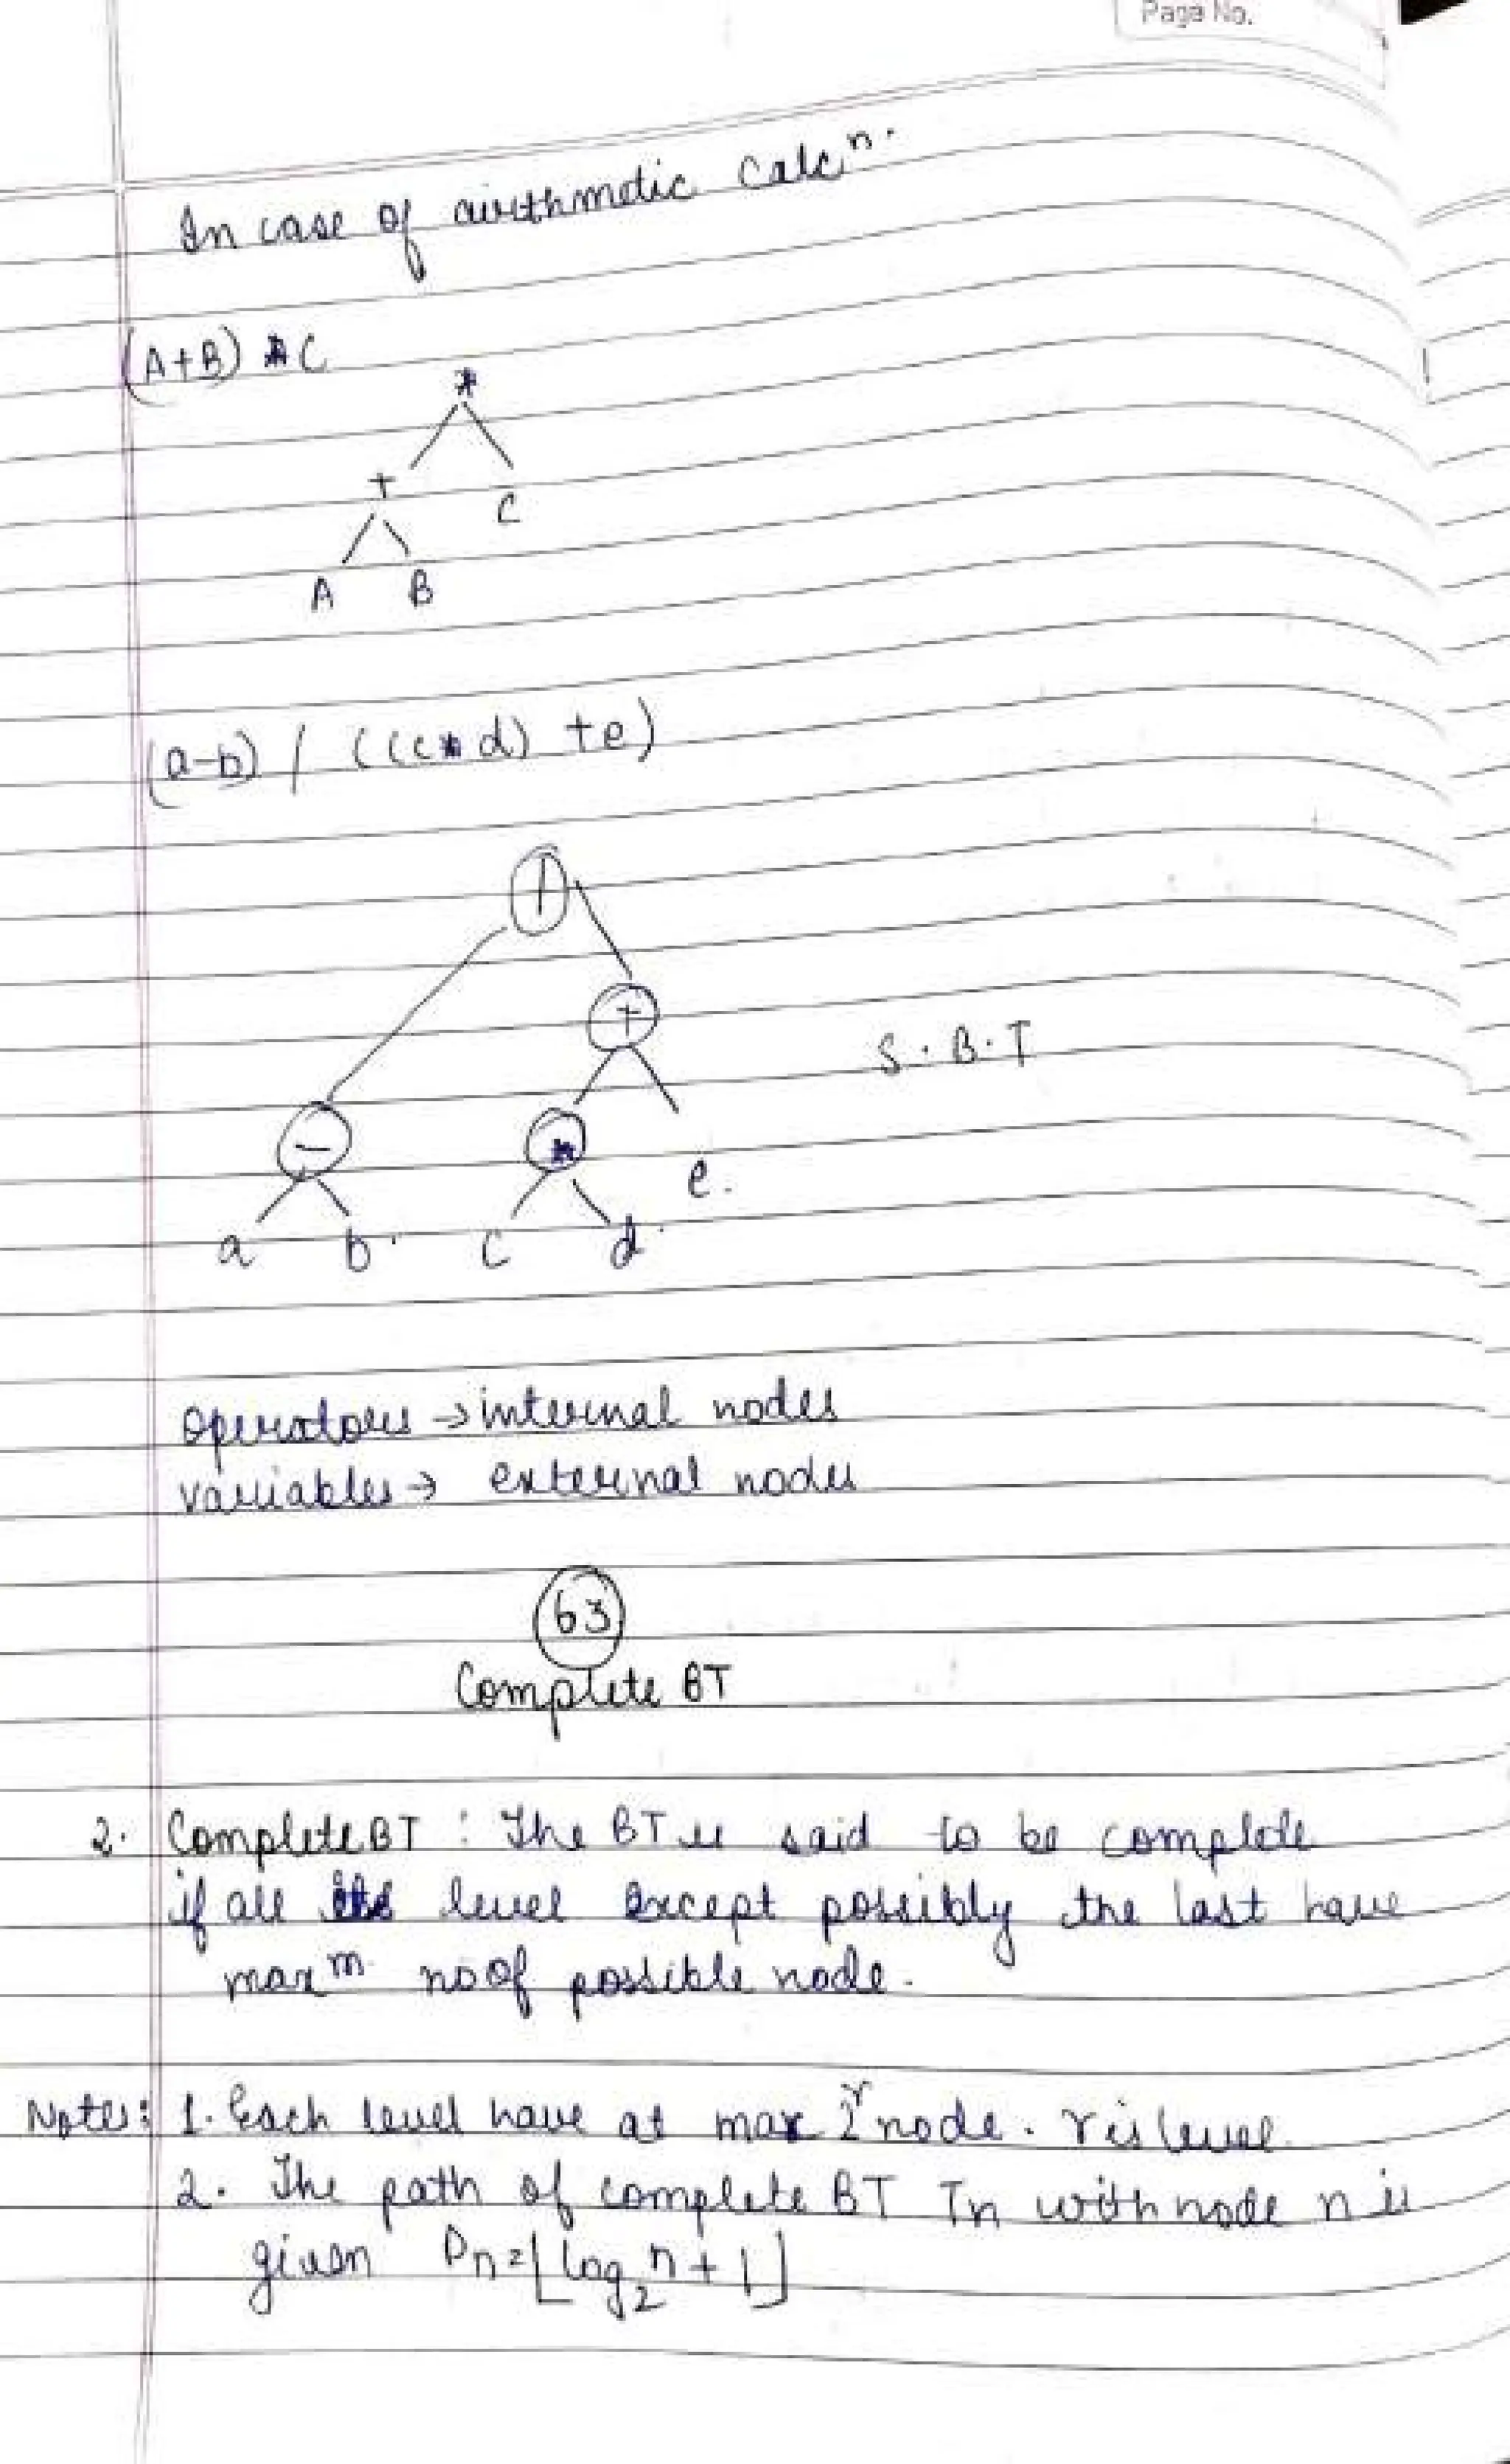 Page No.
In case of airthmetic calcⁿ.
(A+B) * C
*
+ C
A B
(a-b) / ((c*d) +e)
/
+
S.B.T
- *
e.
a b c d
operators → internal nodes
variables → external nodes
63
Complete BT
2. Complete BT : The BT is said to be complete
if all its level except possibly the last have
maxᵐ no of possible node.
Notes: 1. Each level have at max 2ʳ node. r is level.
2. The path of complete BT Tn with node n is
given Dn = ⌊log₂n + 1⌋